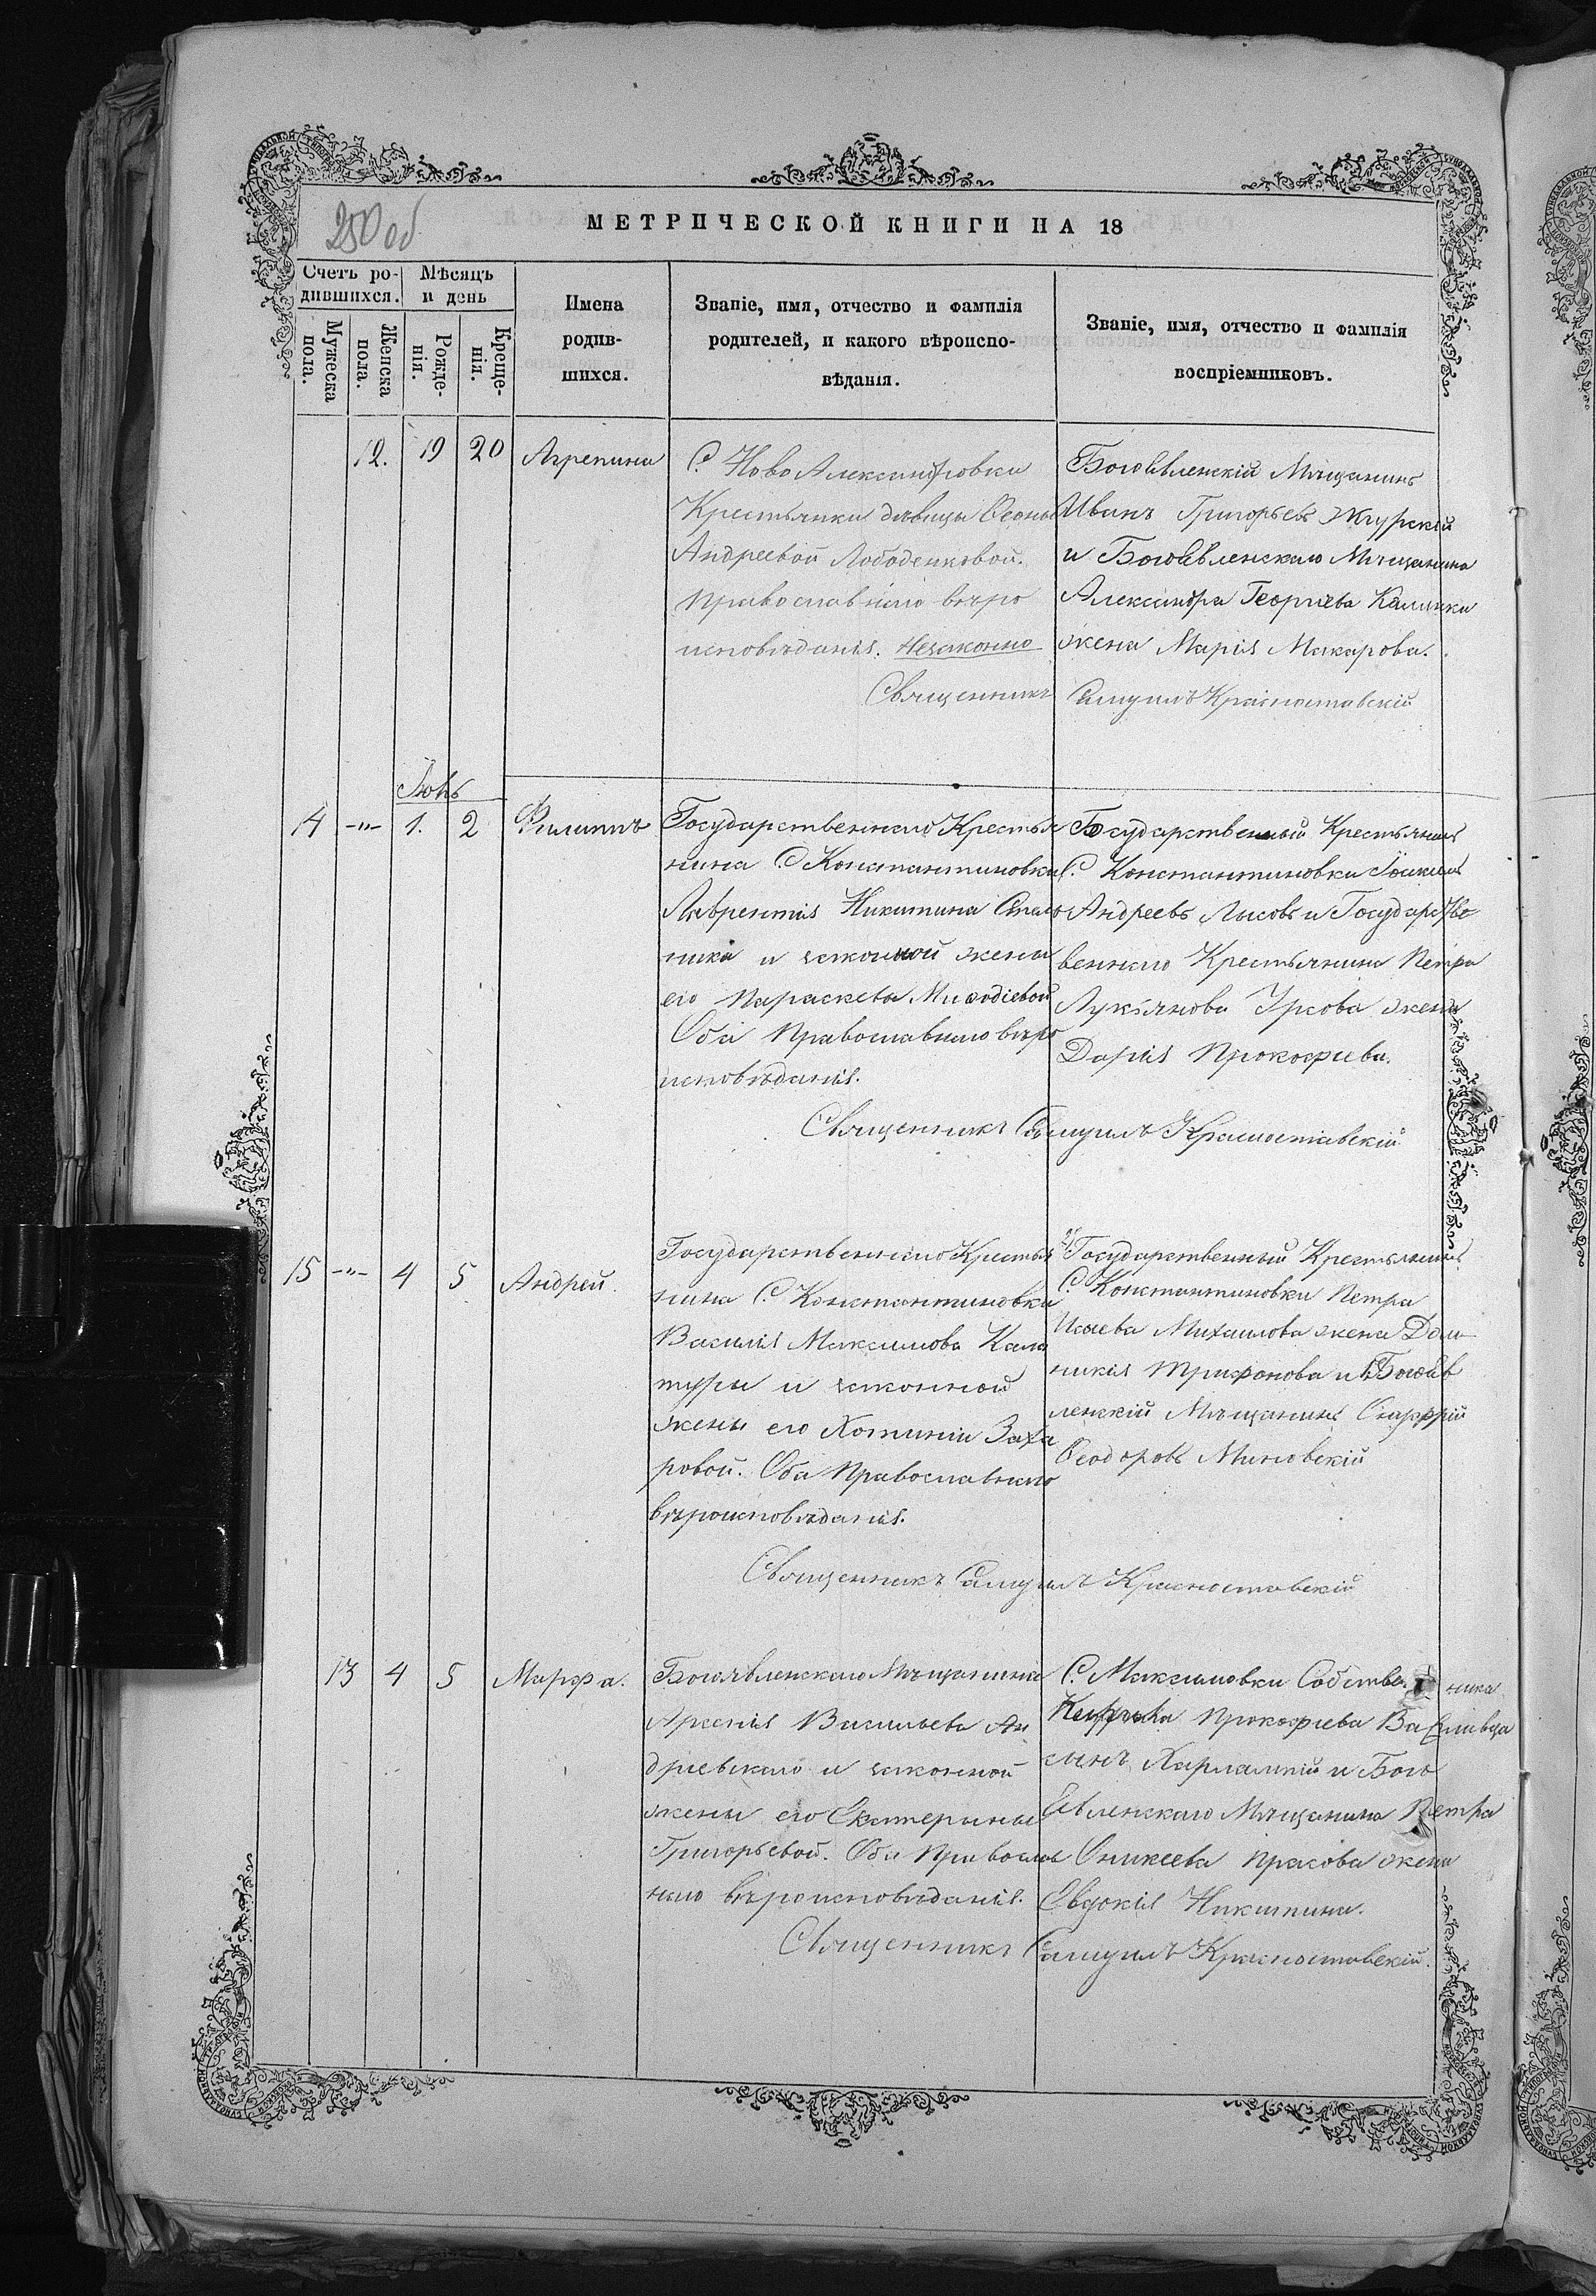 250 об
МЕТРИЧЕСКОЙ КНИГИ НА 18
Счетъ ро-
дившихся.
Мѣсяцъ
и день
Мужеска
пола.
Женска
пола.
Рожде-
нія.
Креще-
нія.
Имена
родив-
шихся.
Званіе, имя, отчество и фамилія
родителей, и какого вѣроиспо-
вѣданія.
Званіе, имя, отчество и фамилія
воспріемниковъ.
12. 19 20 Агрепина
С. Ново Александровки
Крестьянки дѣвицы Ѳеоны
Андреевой Лободенковой.
Православнаго вѣро
исповѣданія. Незаконно
Богоявленскій Мѣщанинъ
Иванъ Григорьевъ Жгурскій
и Богоявленскаго Мѣщанина
Александра Георгіева Калинки
жена Марія Макарова.
Священникъ Самуилъ Красноставскій
Іюнь
14 -"- 1. 2 Филиппъ
Государственнаго Крестья
нина С. Константиновки
Лаврентія Никитина
ника и законной жены
его Параскевы Миѳодіевой
Оба Православнаго вѣро
исповѣданія.
Государственный Крестьянинъ
С. Константиновки
Андреевъ Лысовъ и Государст
веннаго Крестьянина Петра
Лукьянова Урсова жена
Дарія Прокофіева.
Священникъ Самуилъ Красноставскій
15 -"- 4 5 Андрей.
Государственнаго Крестья
нина С. Константиновки
Василія Максимова Кала
туры и законной
жены его Хотиніи Заха
ровой. Оба Православнаго
вѣроисповѣданія.
Государственный Крестьянинъ
С. Константиновки Петра
Исаева Михаилова жена Дом
никія Трифонова и Богояв
ленскій Мѣщанинъ
Ѳеодоровъ Миновскій
Священникъ Самуилъ Красноставскій
13 4 5 Марфа.
Богоявленскаго Мѣщанина
Арсенія Васильева Ан
дріевскаго и законной
жены его Екатерины
Григорьевой. Оба Православ
наго вѣроисповѣданія.
С. Максимовки Собствен ника
Прокофіева
сынъ Харлампій и Бого
явленскаго Мѣщанина Петра
Оникеева Прасова жена
Евдокія Никитина.
Священникъ Самуилъ Красноставскій.